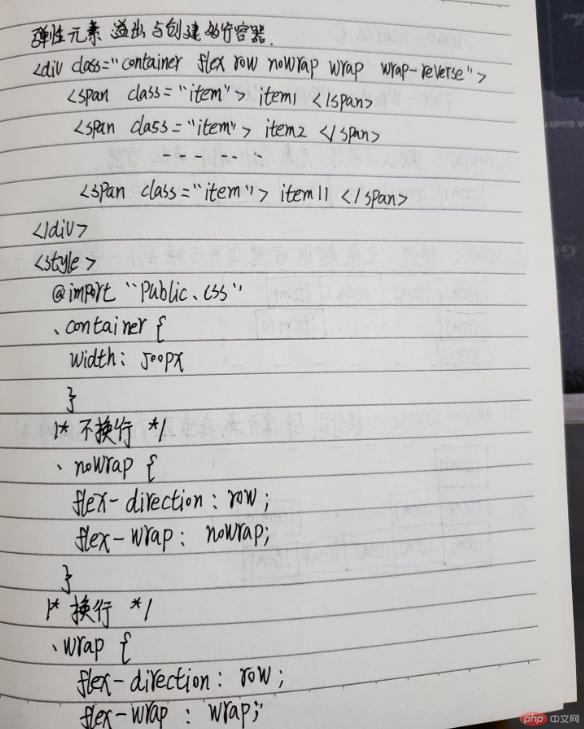 弹性元素 溢出与创建多行容器.
<div class="container flex row nowrap wrap wrap-reverse">
<span class="item"> item1 </span>
<span class="item"> item2 </span>
- - - - - -
<span class="item"> item11 </span>
</div>
<style>
@import "Public.css"
.container {
width: 500px
}
/* 不换行 */
.nowrap {
flex-direction: row;
flex-wrap: nowrap;
}
/* 换行 */
.wrap {
flex-direction: row;
flex-wrap: wrap;
php 中文网